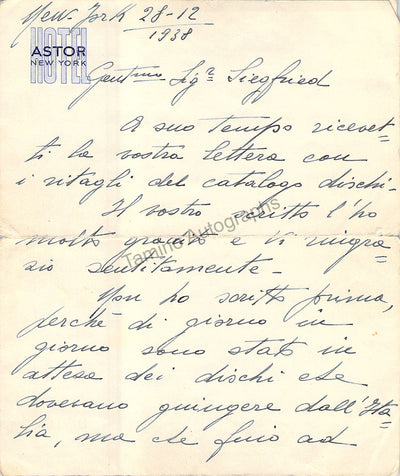 New-York 28-12
1938
HOTEL
ASTOR
NEW YORK
Gent.mo Sig.r Siegfried
A suo tempo ricevet=
ti la vostra lettera con
i ritagli del catalogo dischi-
Il vostro scritto l'ho
molto gradito e Vi ringra=
zio sentitamente-
Non ho scritto prima,
perchè di giorno in
giorno sono stato in
attesa dei dischi che
dovevano giungere dall'Ita=
lia, ma che fino ad
Tamino Autographs